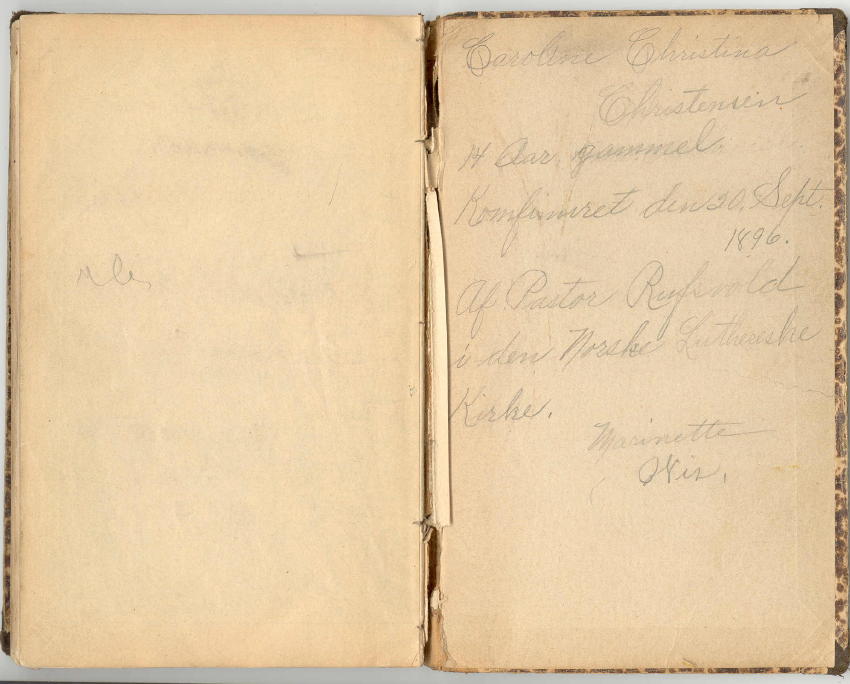 Caroline Christina
Christensen
14 Aar gammel.
Komfimret den 20. Sept.
1896.
Af Pastor
i den Norske Luthereske
Kirke.
Marinette
Wis.